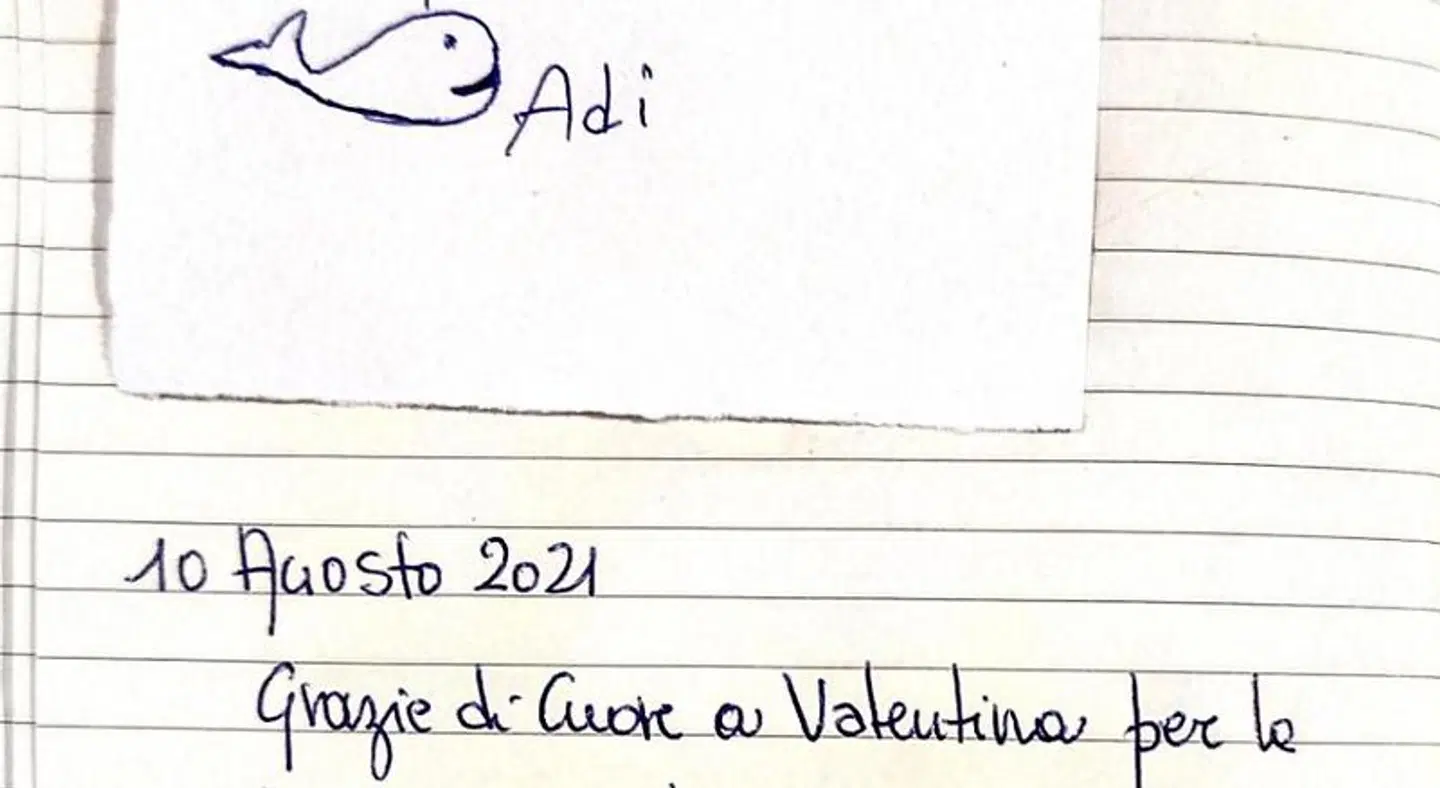 Adi
10 Agosto 2021
Grazie di Cuore a Valentina per la